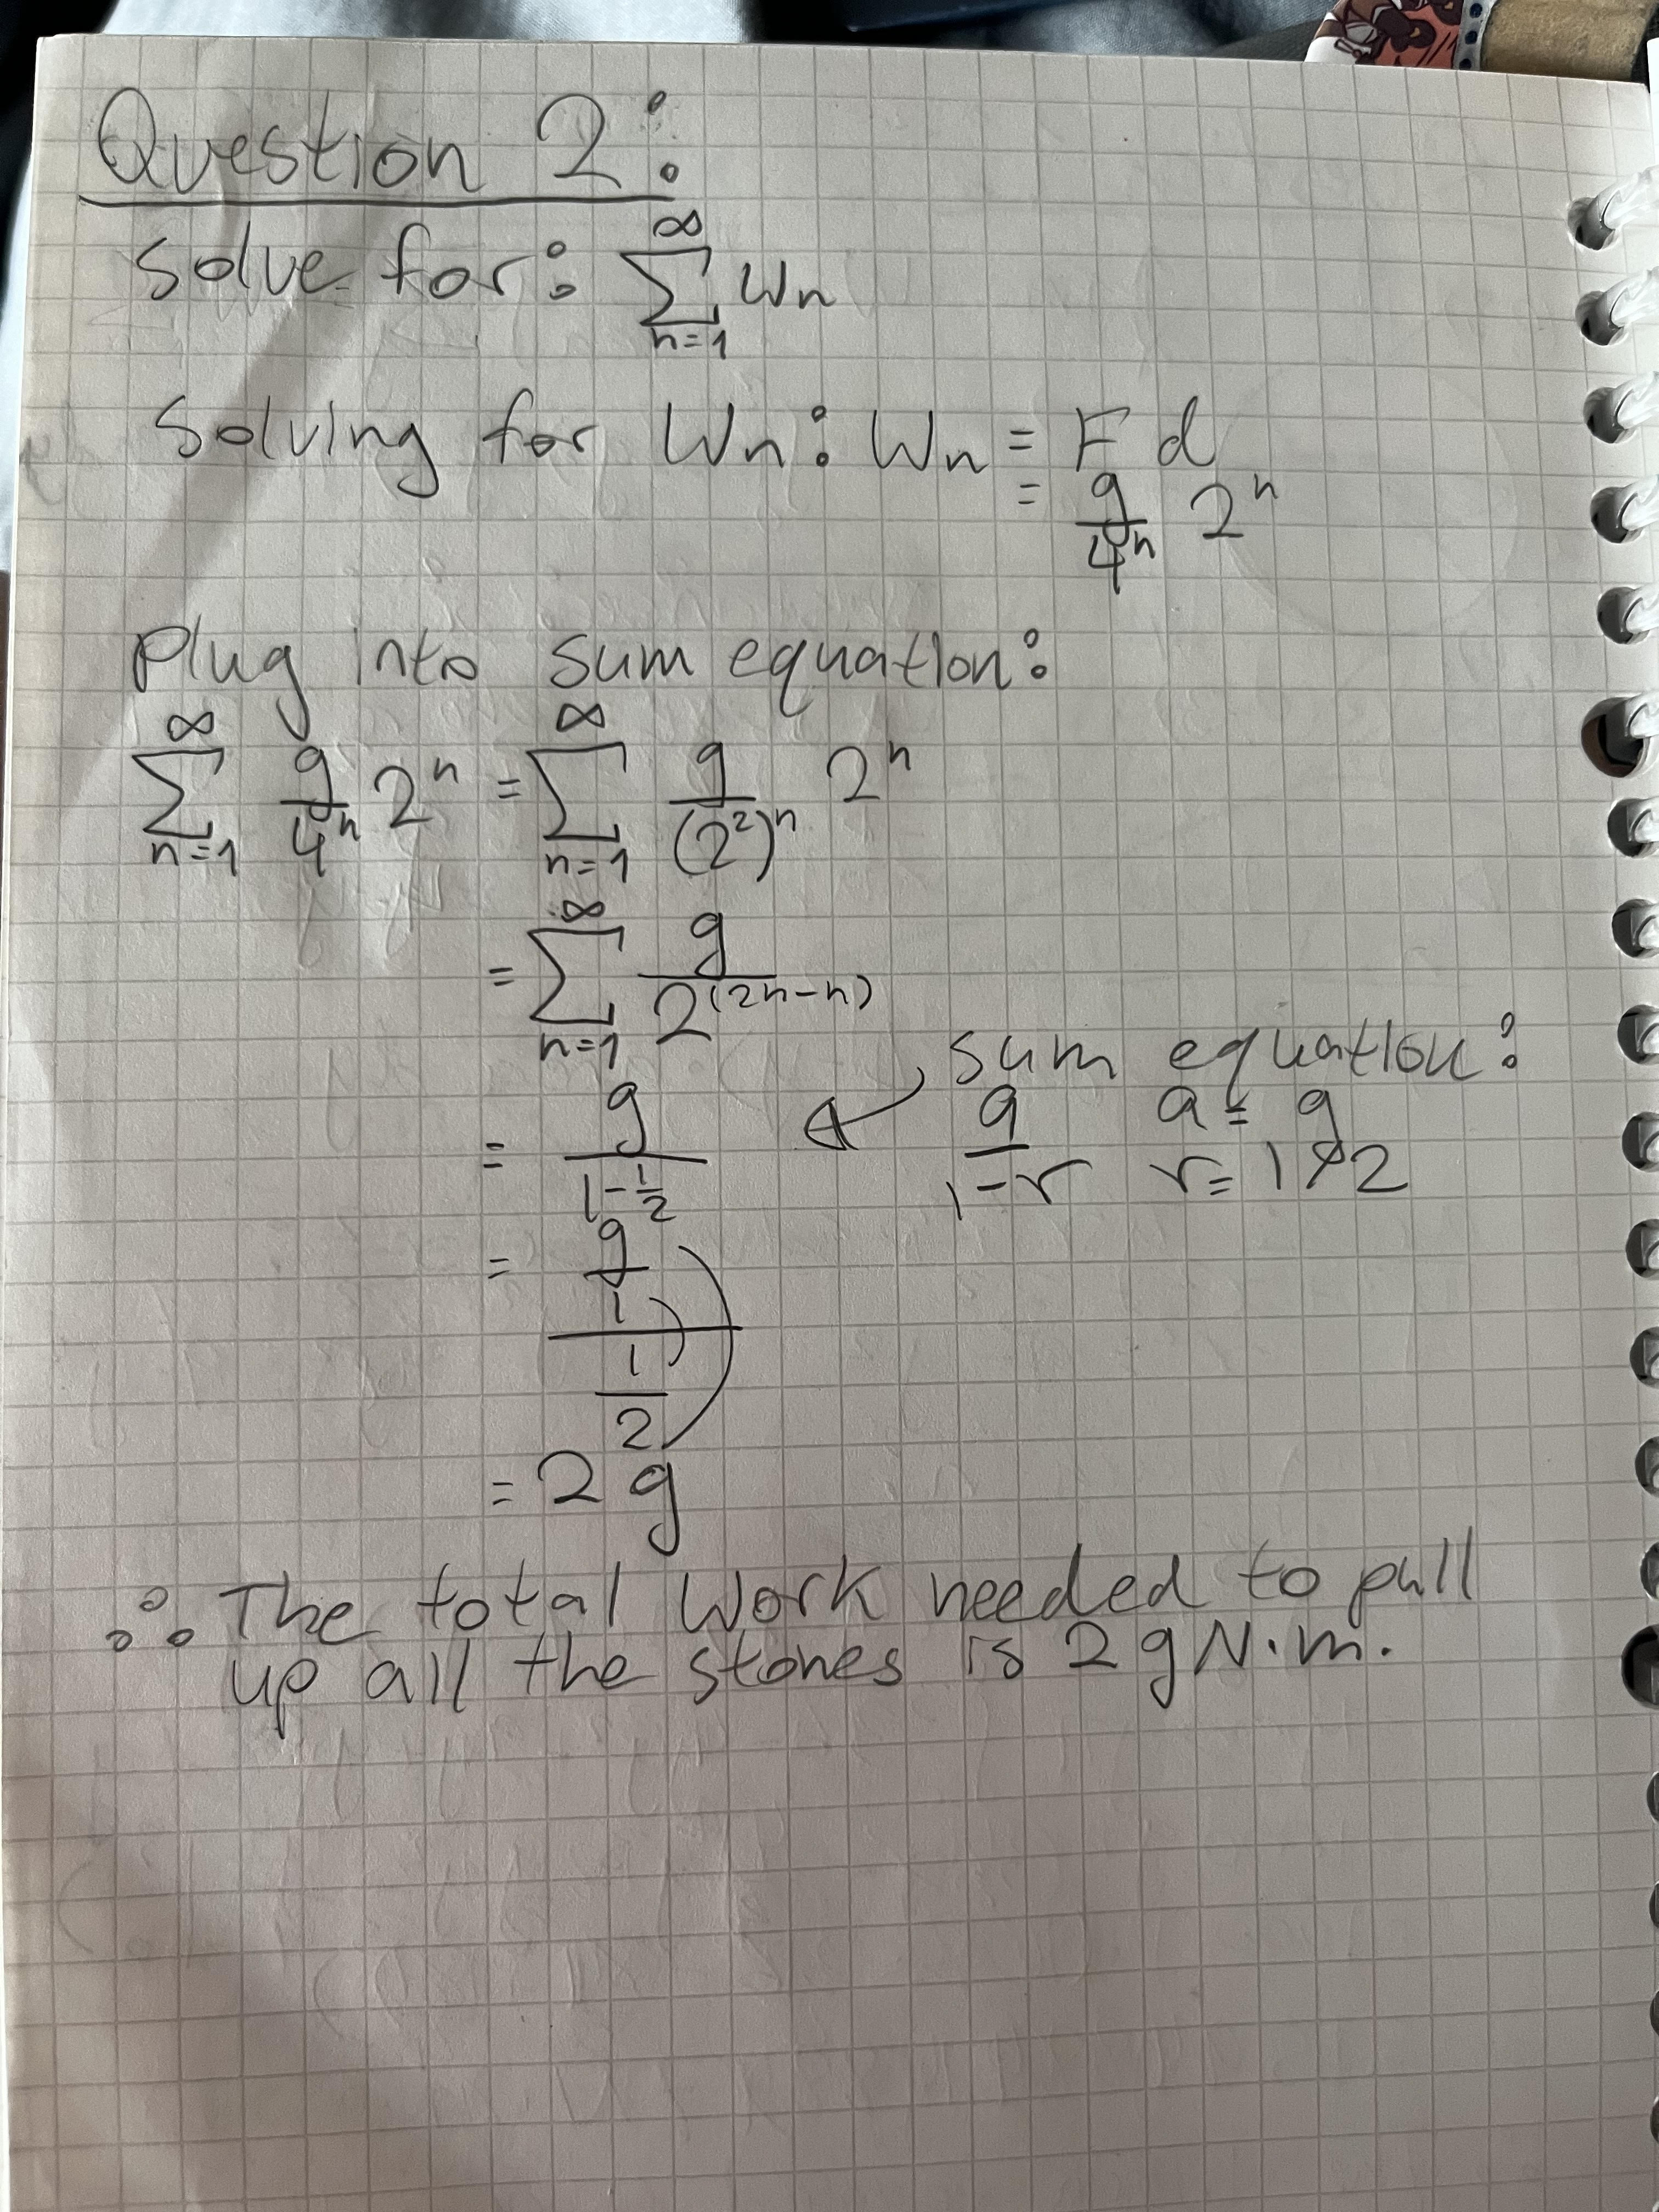 Question 2:
Solve for: ∞∑n=1 Wn
Solving for Wn: Wn = F d
= g/4^n 2^n
Plug into sum equation:
∞∑n=1 g/4^n 2^n = ∞∑n=1 g/(2^2)^n 2^n
= ∞∑n=1 g/2^(2n-n)
sum equation:
= g/(1-1/2) a/1-r a = g r = 1/2
= g/1/1/2
= 2g
∴ The total Work needed to pull
up all the stones is 2g N·m.